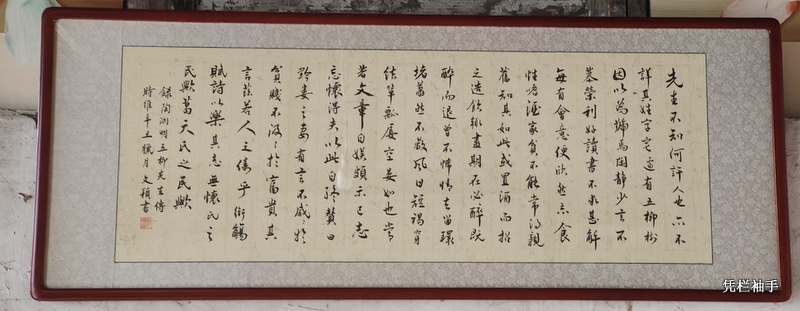 先生不知何許人也亦不
詳其姓字宅邊有五柳樹
因以為號焉閑靜少言不
慕榮利好讀書不求甚解
每有會意便欣然忘食
性嗜酒家貧不能常得親
舊知其如此或置酒而招
之造飲輒盡期在必醉既
醉而退曾不悋情去留環
堵蕭然不蔽風日短褐穿
結簞瓢屢空晏如也常
著文章自娛頗示己志
忘懷得失以此自終贊曰
黔婁之妻有言不戚〻於
貧賤不汲〻於富貴其
言茲若人之儔乎銜觴
賦詩以樂其志無懷氏之
民歟葛天氏之民歟
錄陶淵明五柳先生傳
時維辛丑臘月文穎書
凭栏袖手